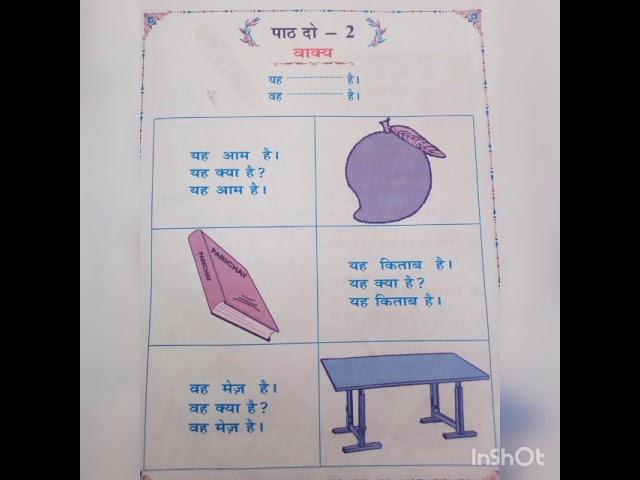 पाठ दो – 2
वाक्य
यह ................ है।
वह ................ है।
यह आम है।
यह क्या है?
यह आम है।
PARICHAY
PARICHAY
यह किताब है।
यह क्या है?
यह किताब है।
वह मेज़ है।
वह क्या है?
वह मेज़ है।
InShOt